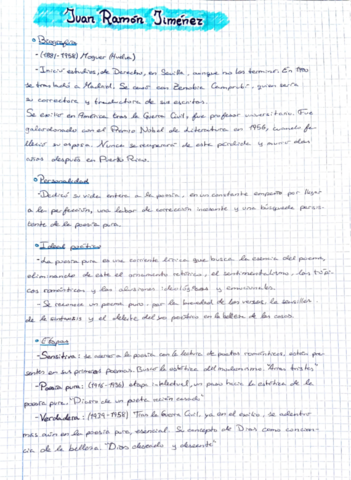 Juan Ramón Jiménez
Biografía
- (1881-1958) Moguer (Huelva)
- Inició estudios de Derecho, en Sevilla, aunque no los terminó. En 1900
se trasladó a Madrid. Se casó con Zenobia Camprubí, quien sería
su correctora y traductora de sus escritos.
Se exilió en América tras la Guerra Civil, fue profesor universitario. Fue
galardonado con el Premio Nobel de Literatura en 1956, cuando fa-
lleció su esposa. Nunca se recuperó de esta pérdida y murió dos
años después en Puerto Rico.
Personalidad
- Dedicó su vida entera a la poesía, en un constante empeño por llegar
a la perfección, una labor de corrección incesante y una búsqueda persis-
tente de la poesía pura.
Ideal poético
- La poesía pura es una corriente lírica que busca la esencia del poema,
eliminando de este el ornamento retórico, el sentimentalismo, los tópi-
cos románticos y las alusiones ideológicas y emocionales.
- Se reconoce un poema puro, por la brevedad de los versos, la sencillez
de la sintaxis y el deleite del yo poético en la belleza de las cosas.
Etapas
- Sensitiva: se acerca a la poesía con la lectura de poetas románticos, están pre-
sentes en sus primeros poemas. Busca la estética del modernismo. "Arias tristes"
- Poesía pura: (1916-1936) etapa intelectual, un paso hacia la estética de la
poesía pura. "Diario de un poeta recién casado"
- Verdadera: (1939-1958) Tras la Guerra Civil, ya en el exilio, se adentra
más aún en la poesía pura, esencial. Su concepto de Dios como concien-
cia de la belleza. "Dios deseado y deseante"